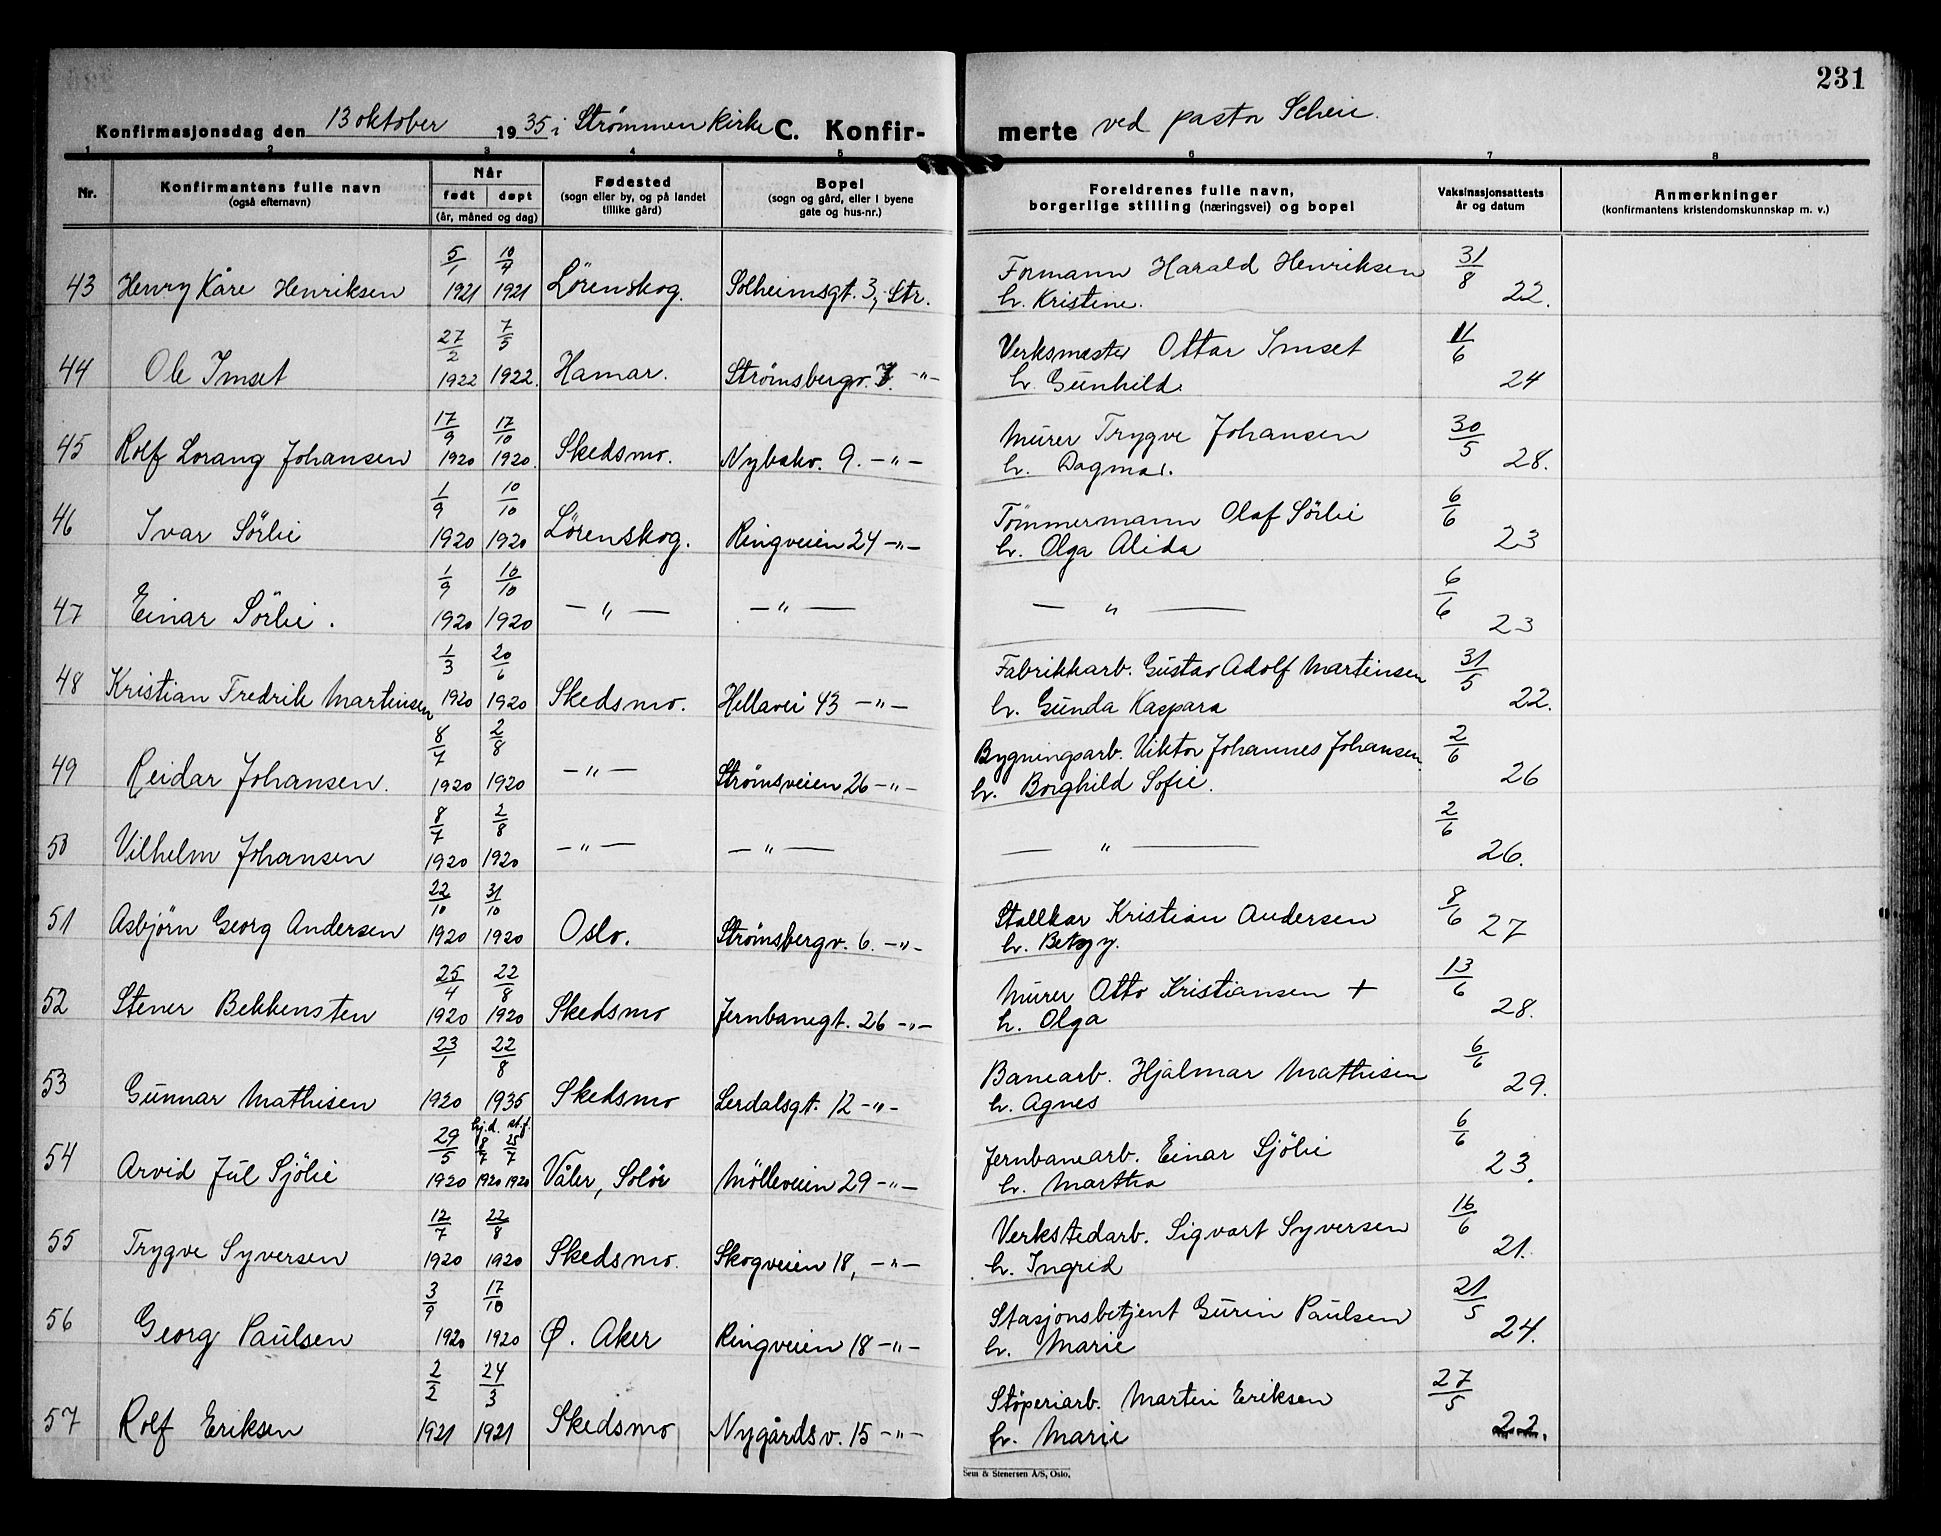 231
Konfirmasjonsdag den 13 oktober 1935 i Strømmen kirke C. Konfir- merte ved pastor Scheie.
1 2 3 4 5 6 7 8
Nr. Konfirmantens fulle navn (også efternavn) Når født døpt (år, måned og dag) Fødested (sogn eller by, og på landet tillike gård) Bopel (sogn og gård, eller i byene gate og hus-nr.) Foreldrenes fulle navn, borgerlige stilling (næringsvei) og bopel Vaksinasjonsattests år og datum Anmerkninger (konfirmantens kristendomskunnskap m. v.)
43 Henry Kåre Henriksen 5/1 1921 10/4 1921 Lörenskog. Solheimsgt. 3, Str. Formann Harald Henriksen 31/8 22.
h. Kristine.
44 Ole Imset 27/2 1922 7/5 1922. Hamar. Strømsbergv. 7. -"- Verksmester Ottar Imset 11/6 24
h. Gunhild.
45 Rolf Lorang Johansen 17/9 1920 17/10 1920. Skedsmo. Nybakv. 9. -"- Murer Trygve Johansen 30/5 28.
h. Dagmar.
46 Ivar Sörlie 1/9 1920 10/10 1920 Lörenskog. Ringveien 24 -"- Tömmermann Olaf Sörlie 6/6 23
h. Olga Alida
47 Einar Sörlie. 1/9 1920 10/10 1920 -"- -"- -"- 6/6 23
48 Kristian Fredrik Martinsen 1/3 1920 20/6 1920 Skedsmo. Hellavei 43 -"- Fabrikkarb. Gustav Adolf Martinsen 31/5 22.
h. Gunda Kaspara
49 Reidar Johansen. 8/7 1920 2/8 1920 -"- Strømsveien 26 -"- Bygningsarb. Viktor Johannes Johansen. 2/6 26
h. Borghild Sofie.
50 Vilhelm Johansen 8/7 1920 2/8 1920 -"- -"- -"- 2/6 26.
51 Asbjörn Georg Andersen 22/10 1920 31/10 1920 Oslo. Strømsbergv. 6. -"- Stallkar Kristian Andersen 8/6 27
h. Betzy.
52 Stener Bekkensten 25/4 1920 22/8 1920 Skedsmo Jernbanegt. 26 -"- Murer Otto Kristiansen + 13/6 28.
h. Olga
53 Gunnar Mathisen 23/1 1920 22/8 1935 Skedsmo Lerdalsgt. 12 -"- Banearb. Hjalmar Mathisen 6/6 29.
h. Agnes
54 Arvid Jul Sjölie 29/5 1920 hj.d. 8/7 1920 st.f. 25/7 1920 Våler, Solör Mölleveien 29 -"- Jernbanearb. Einar Sjölie 6/6 23.
h. Martha
55 Trygve Syversen 12/7 1920 22/8 1920 Skedsmo. Skogveien 18, -"- Verkstedarb. Sigvart Syversen 16/6 21.
h. Ingrid
56 Georg Paulsen 3/9 1920 17/10 1920 Ø. Aker Ringveien 18 -"- Stasjonsbetjent Gurin Paulsen 21/5 24.
h. Marie
57 Rolf Eriksen 2/2 1921 24/3 1921 Skedsmo Nygårdsv. 15 -"- Støperiarb. Martin Eriksen 27/5 22.
h. Marie
Sem & Stenersen A/S, Oslo.